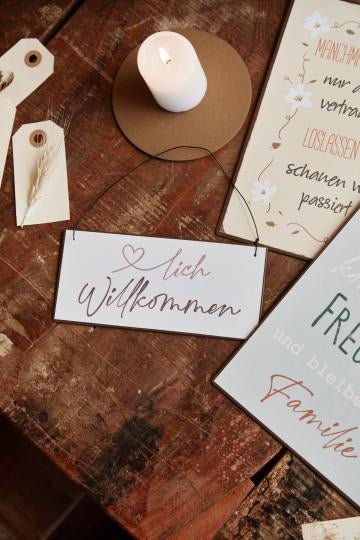 lich
Willkommen
MANCHM
nur
vertra
LOSLASSEN
schauen w
passiert
FREU
und bleibe
Familie